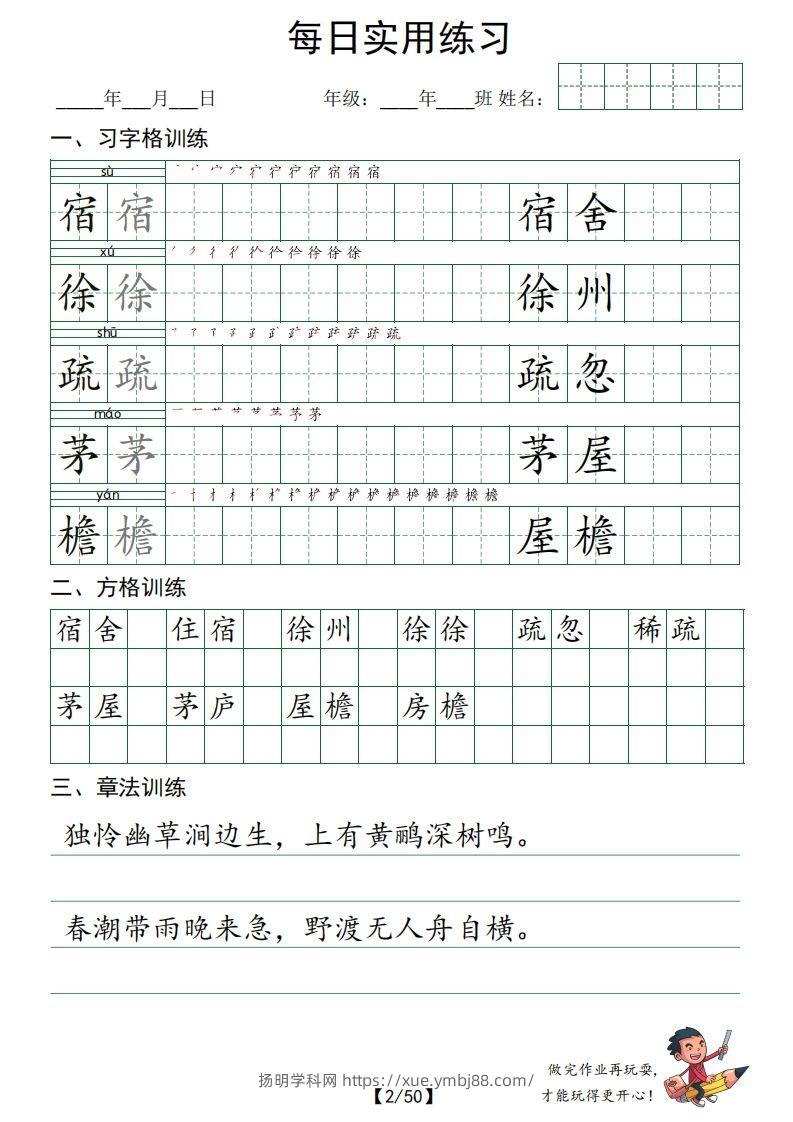 每日实用练习
_____年___月___日 年级：____年____班 姓名：
一、习字格训练
sù
宿 宿 宿 舍
xú
徐 徐 徐 州
shū
疏 疏 疏 忽
máo
茅 茅 茅 屋
yán
檐 檐 屋 檐
二、方格训练
宿 舍 住 宿 徐 州 徐 徐 疏 忽 稀 疏
茅 屋 茅 庐 屋 檐 房 檐
三、章法训练
独怜幽草涧边生，上有黄鹂深树鸣。
春潮带雨晚来急，野渡无人舟自横。
做完作业再玩耍，
才能玩得更开心！
扬明学科网 https://xue.ymbj88.com/
【2/50】